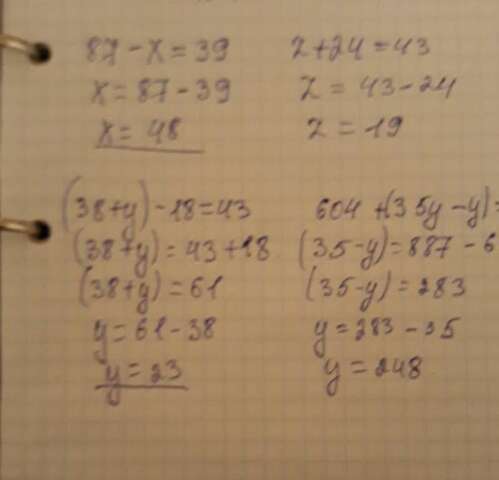 87 - x = 39
x = 87 - 39
x = 48
z + 24 = 43
z = 43 - 24
z = 19
(38+y) - 18 = 43
(38+y) = 43 + 18
(38+y) = 61
y = 61 - 38
y = 23
604 + (35y - y) =
(35 - y) = 887 - 6
(35 - y) = 283
y = 283 - 35
y = 248